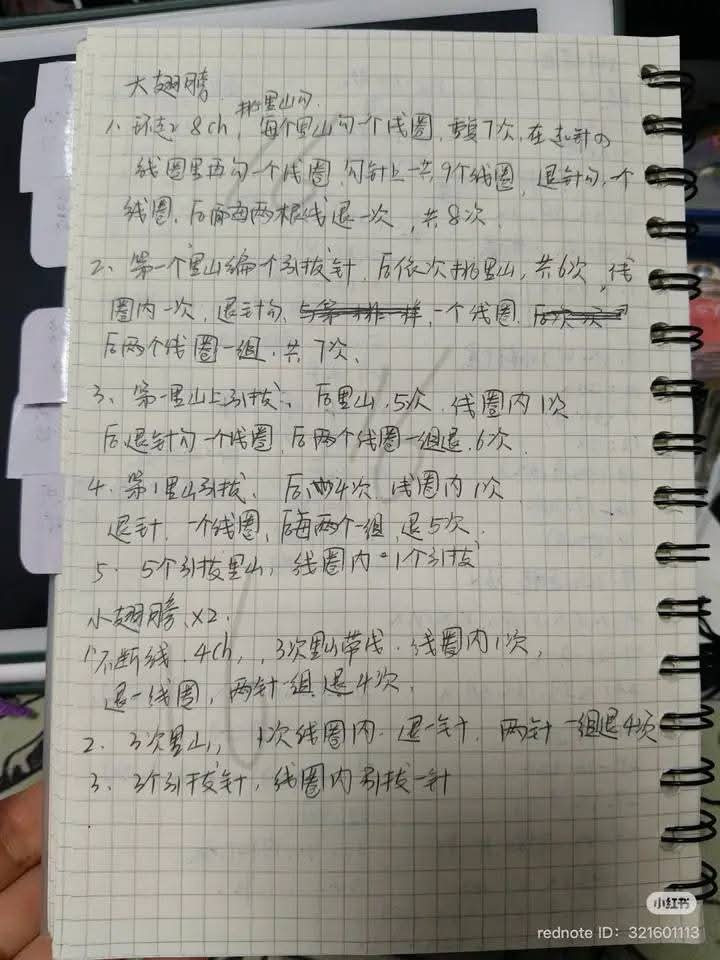 大翅膀
挑里山勾
1、环起 8ch, 每个里山勾一个线圈, 重复7次, 在起针的
线圈里再勾一个线圈, 勾针上一共9个线圈, 退针勾一个
线圈, 后面每两根线退一次, 共8次
2、第一个里山编个引拔针, 后依次挑里山, 共6次, 线
圈内一次, 退针勾, 一个线圈,
后两个线圈一组, 共7次、
3、第一里山上引拔、后里山, 5次, 线圈内1次
后退针勾一个线圈, 后两个线圈一组退, 6次
4、第1里山引拔、后 4次, 线圈内1次
退针, 一个线圈, 后每两个一组, 退5次,
5、5个引拔里山, 线圈内 1个引拔
小翅膀、×2.
1不断线、4ch, , 3次里山带线、线圈内1次,
退一线圈, 两针一组, 退4次,
2、3次里山, 1次线圈内、退一针, 两针一组退4次
3、3个引拔针, 线圈内引拔一针
小红书
rednote ID: 321601113